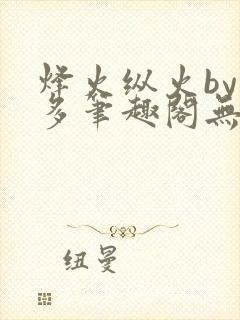 烽火纵火by
多筆趣閣無
纽曼